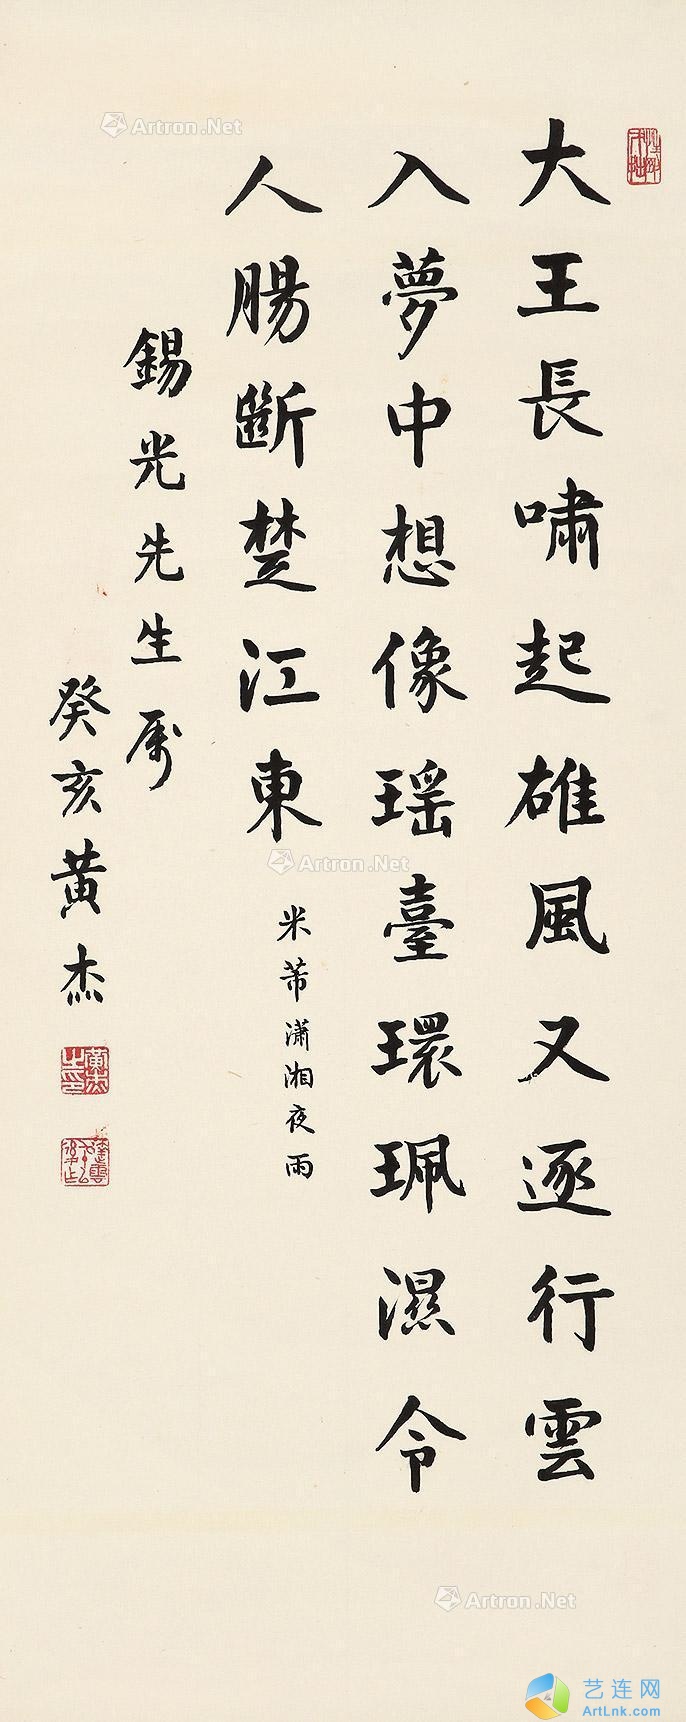 大王長嘯起雄風又逐行雲
入夢中想像瑶臺環珮濕令
人腸斷楚江東
米芾瀟湘夜雨
錫光先生属
癸亥黄杰
Artron.Net
Artron.Net
Artron.Net
艺连网
ArtLnk.com